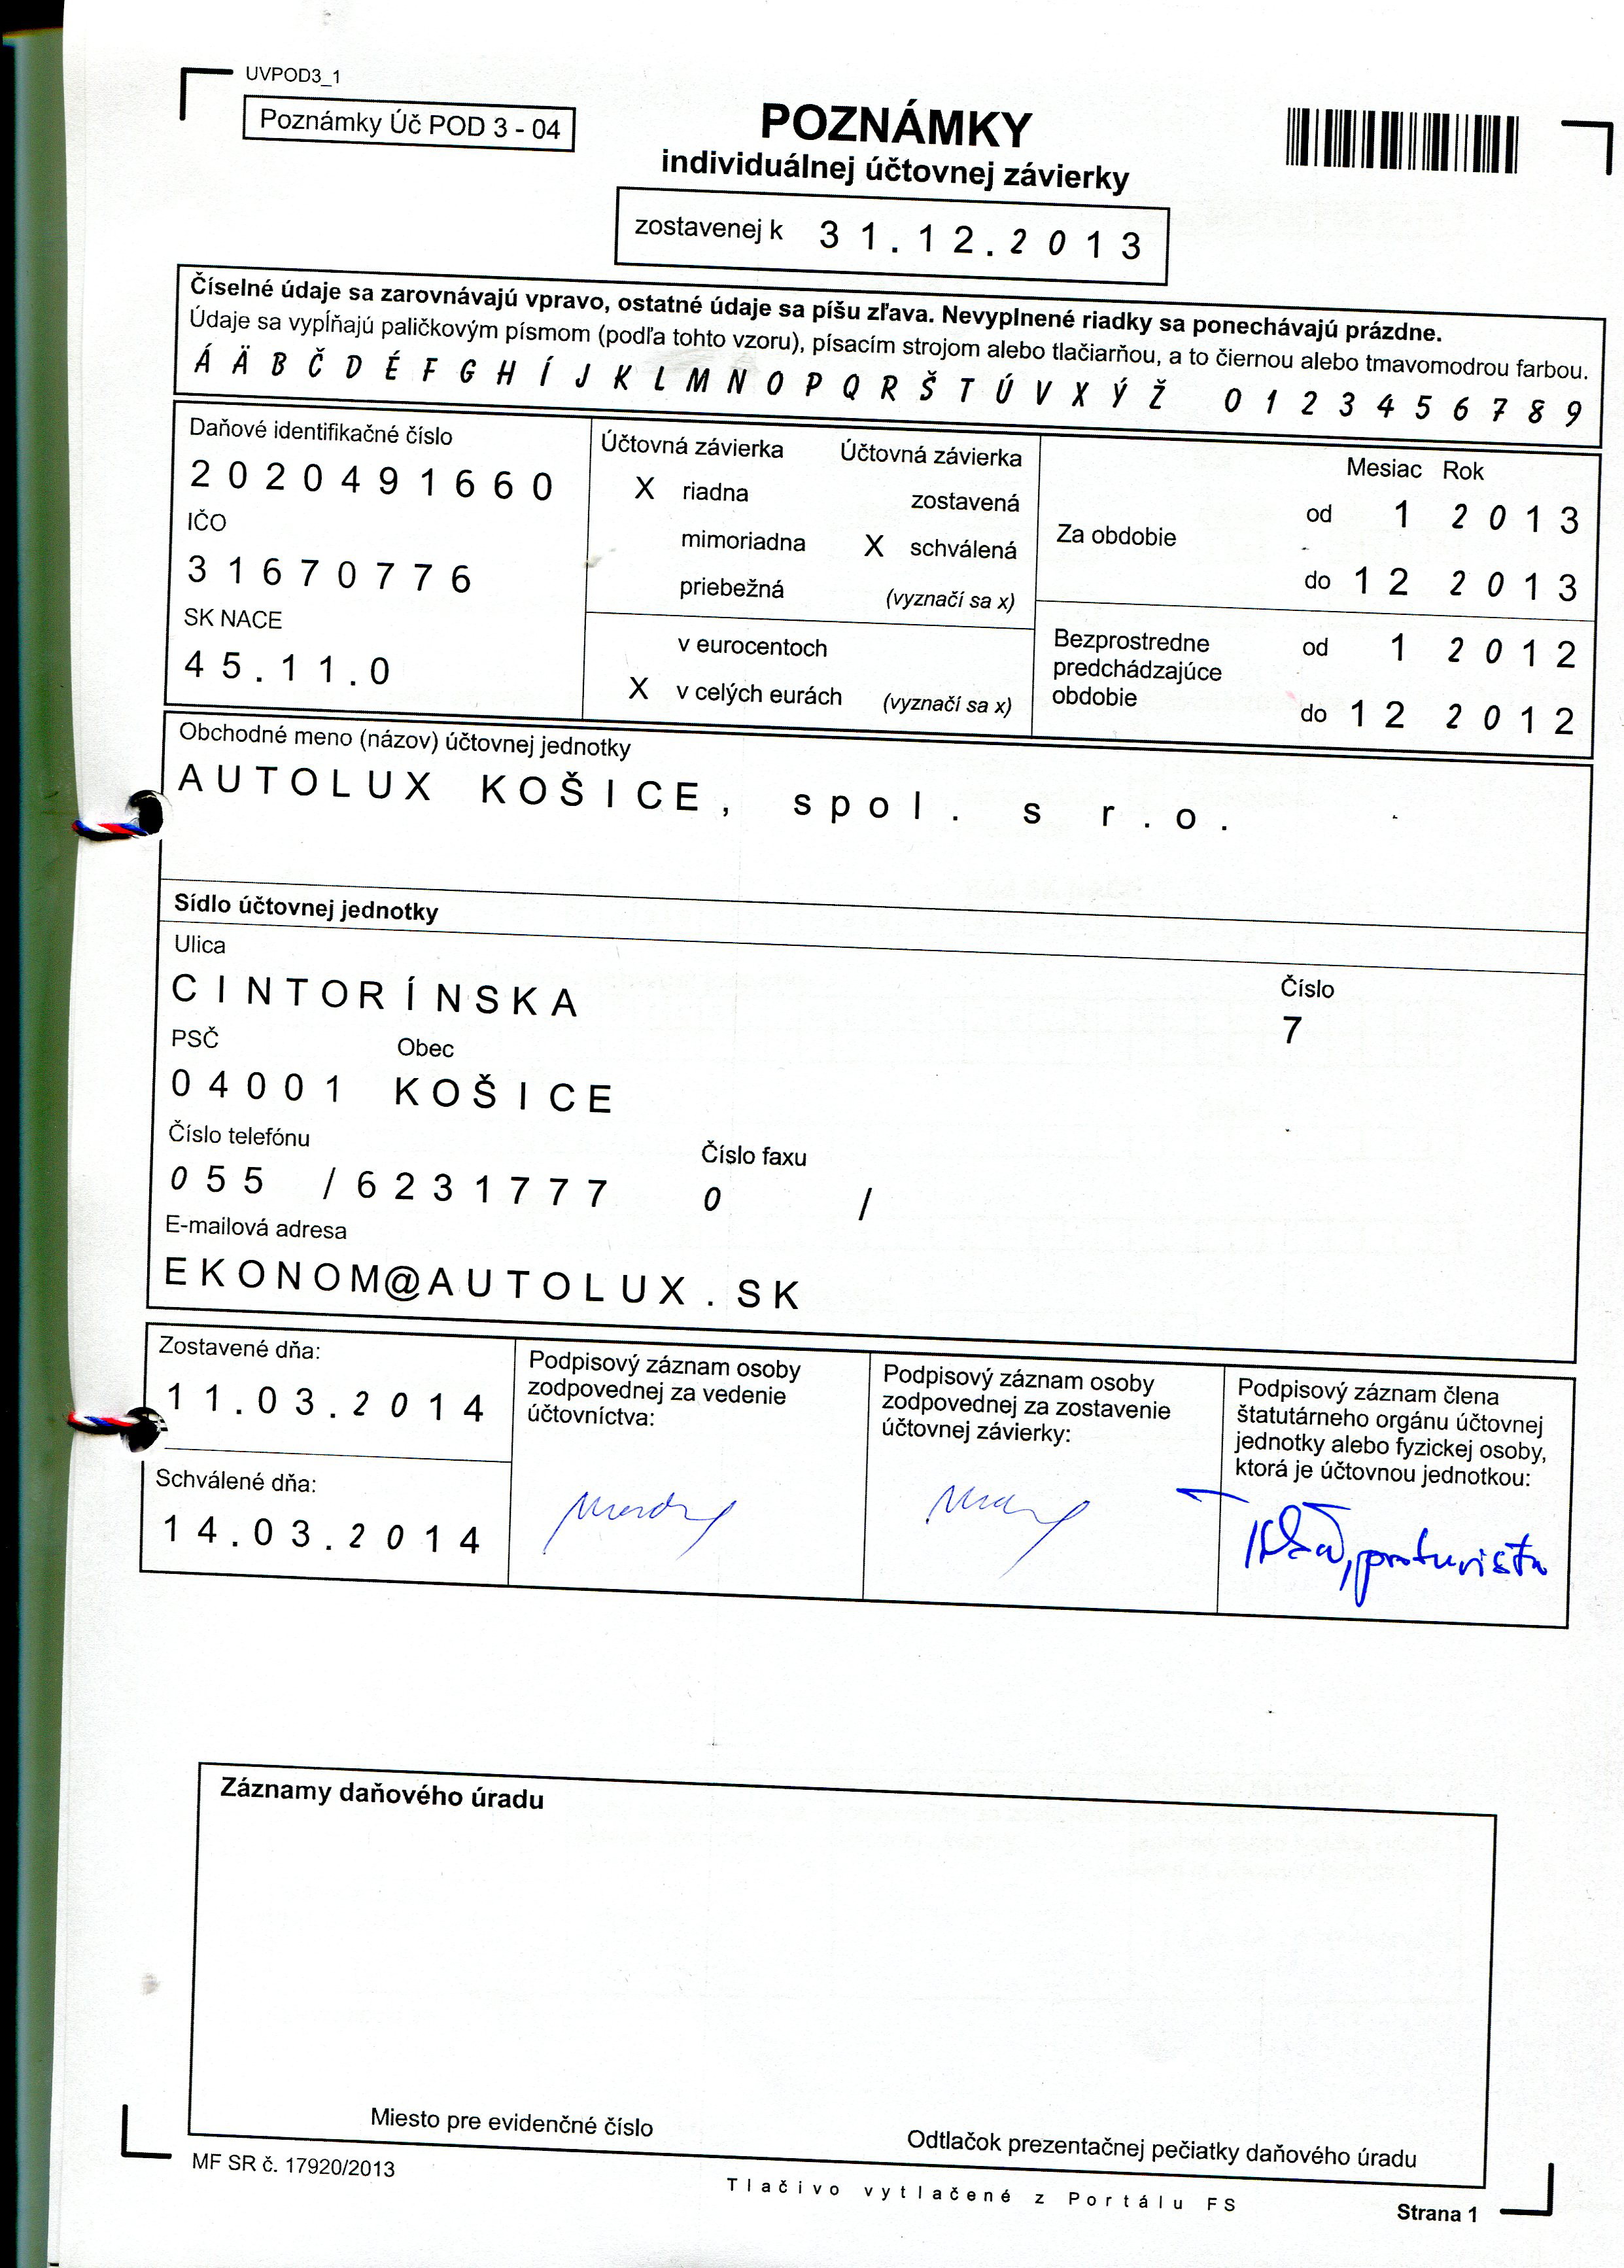 UVPOD3_1
Poznámky Úč POD 3 - 04
POZNÁMKY
individuálnej účtovnej závierky
zostavenej k 31.12.2013
Číselné údaje sa zarovnávajú vpravo, ostatné údaje sa píšu zľava. Nevyplnené riadky sa ponechávajú prázdne.
Údaje sa vypĺňajú paličkovým písmom (podľa tohto vzoru), písacím strojom alebo tlačiarňou, a to čiernou alebo tmavomodrou farbou.
Á Ä B Č D É F G H Í J K L M N O P Q R Š T Ú V X Ý Ž 0 1 2 3 4 5 6 7 8 9
Daňové identifikačné číslo
2020491660
IČO
31670776
SK NACE
45.11.0
Účtovná závierka
X riadna
mimoriadna
priebežná
Účtovná závierka
zostavená
X schválená
(vyznačí sa x)
v eurocentoch
X v celých eurách (vyznačí sa x)
Mesiac Rok
Za obdobie
od 1 2013
do 12 2013
Bezprostredne
predchádzajúce
obdobie
od 1 2012
do 12 2012
Obchodné meno (názov) účtovnej jednotky
AUTOLUX KOŠICE, spol. s r.o.
Sídlo účtovnej jednotky
Ulica
CINTORÍNSKA
Číslo
7
PSČ Obec
04001 KOŠICE
Číslo telefónu Číslo faxu
055 /6231777 0 /
E-mailová adresa
EKONOM@AUTOLUX.SK
Zostavené dňa:
11.03.2014
Schválené dňa:
14.03.2014
Podpisový záznam osoby
zodpovednej za vedenie
účtovníctva:
Podpisový záznam osoby
zodpovednej za zostavenie
účtovnej závierky:
Podpisový záznam člena
štatutárneho orgánu účtovnej
jednotky alebo fyzickej osoby,
ktorá je účtovnou jednotkou:
Záznamy daňového úradu
Miesto pre evidenčné číslo
Odtlačok prezentačnej pečiatky daňového úradu
MF SR č. 17920/2013
Tlačivo vytlačené z Portálu FS
Strana 1